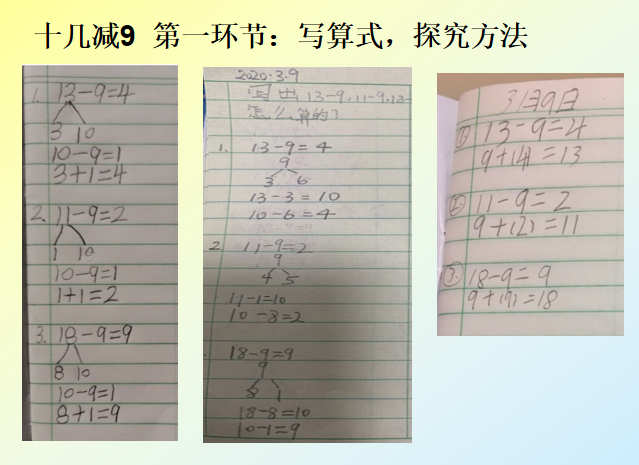 十几减9 第一环节：写算式，探究方法
1. 13-9=4
3 10
10-9=1
3+1=4
2. 11-9=2
1 10
10-9=1
1+1=2
3. 18-9=9
8 10
10-9=1
8+1=9
2020.3.9
写出13-9,11-9,18-
怎么算的?
1. 13-9=4
9
3 6
13-3=10
10-6=4
2 11-9=2
9
4 5
11-1=10
10-8=2
18-9=9
9
8 1
18-8=10
10-1=9
3月9日
① 13-9=4
9+(4)=13
② 11-9=2
9+(2)=11
③ 18-9=9
9+(9)=18